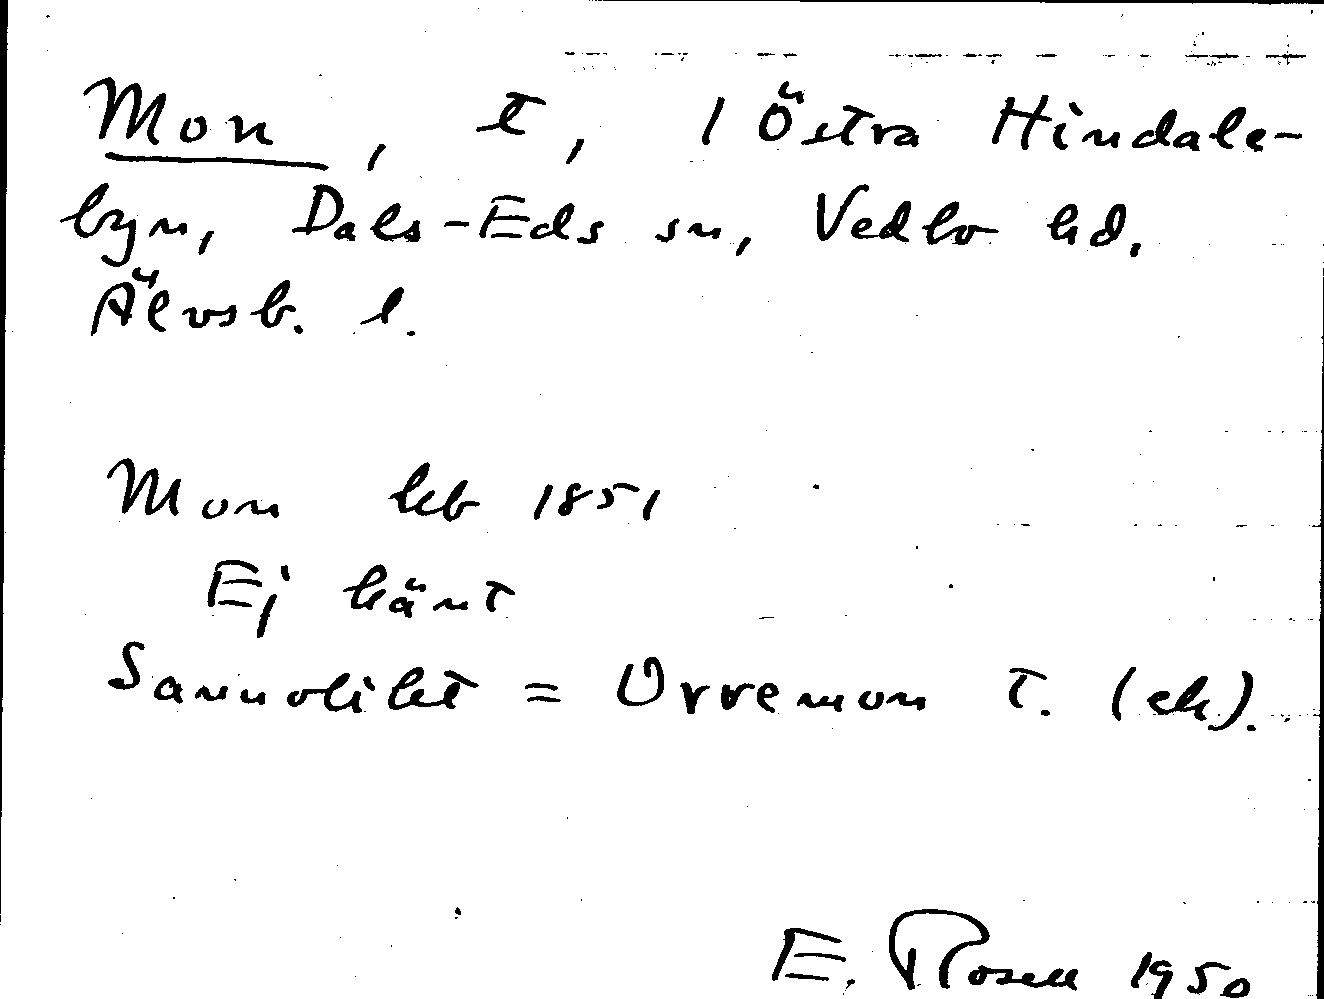 Mon, t, 1 Östra Hindale-
byn, Dals-Eds sn, Vedbo hd.
Älvsb. l.
Mon kb 1851
Ej känt
Sannolikt = Orremon T. (ek).
E. Rosell 1950